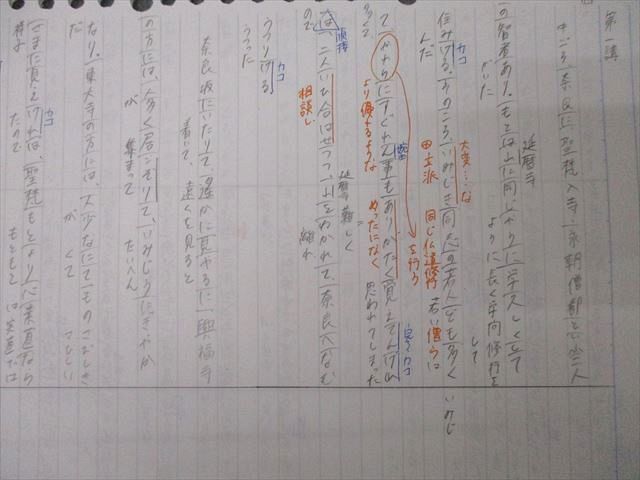 第一講
中ごろ、奈良に、聖梵入寺・永朝僧都といふ二人
の智者ありもとは山に同じやうに学久しくして
がいた
延暦寺
ように長く学問修行を
して
住みける。そのころ、いみじき同志の若人ども多く
カコ
大変…な
んだ
田立派
同じ仏道修行
若い僧らは
いみじ
くて
やから
にすぐれて
事もありがたく覚えてんげれ
より優るような
めったになく
思われてしまった
を行う
カコ
は、二人いひ合はせつつ、山をわかれて、奈良へなむ
ので
順接
相談し
延暦寺
難しく
離れ
うつりける
カコ
うつった
奈良坂にいたりて、遥かに見やるに、興福寺
着いて、
遠くを見ると
の方には、人多く居こもりて、いみじうにぎやか
が
集まって
たいへん
なり。東大寺の方には、人少なにてものさびしき
だ
が
くて
さびしい
さまに見えければ、聖梵もとより心素直なら
カコ
様子
たので
もともと
は実直では